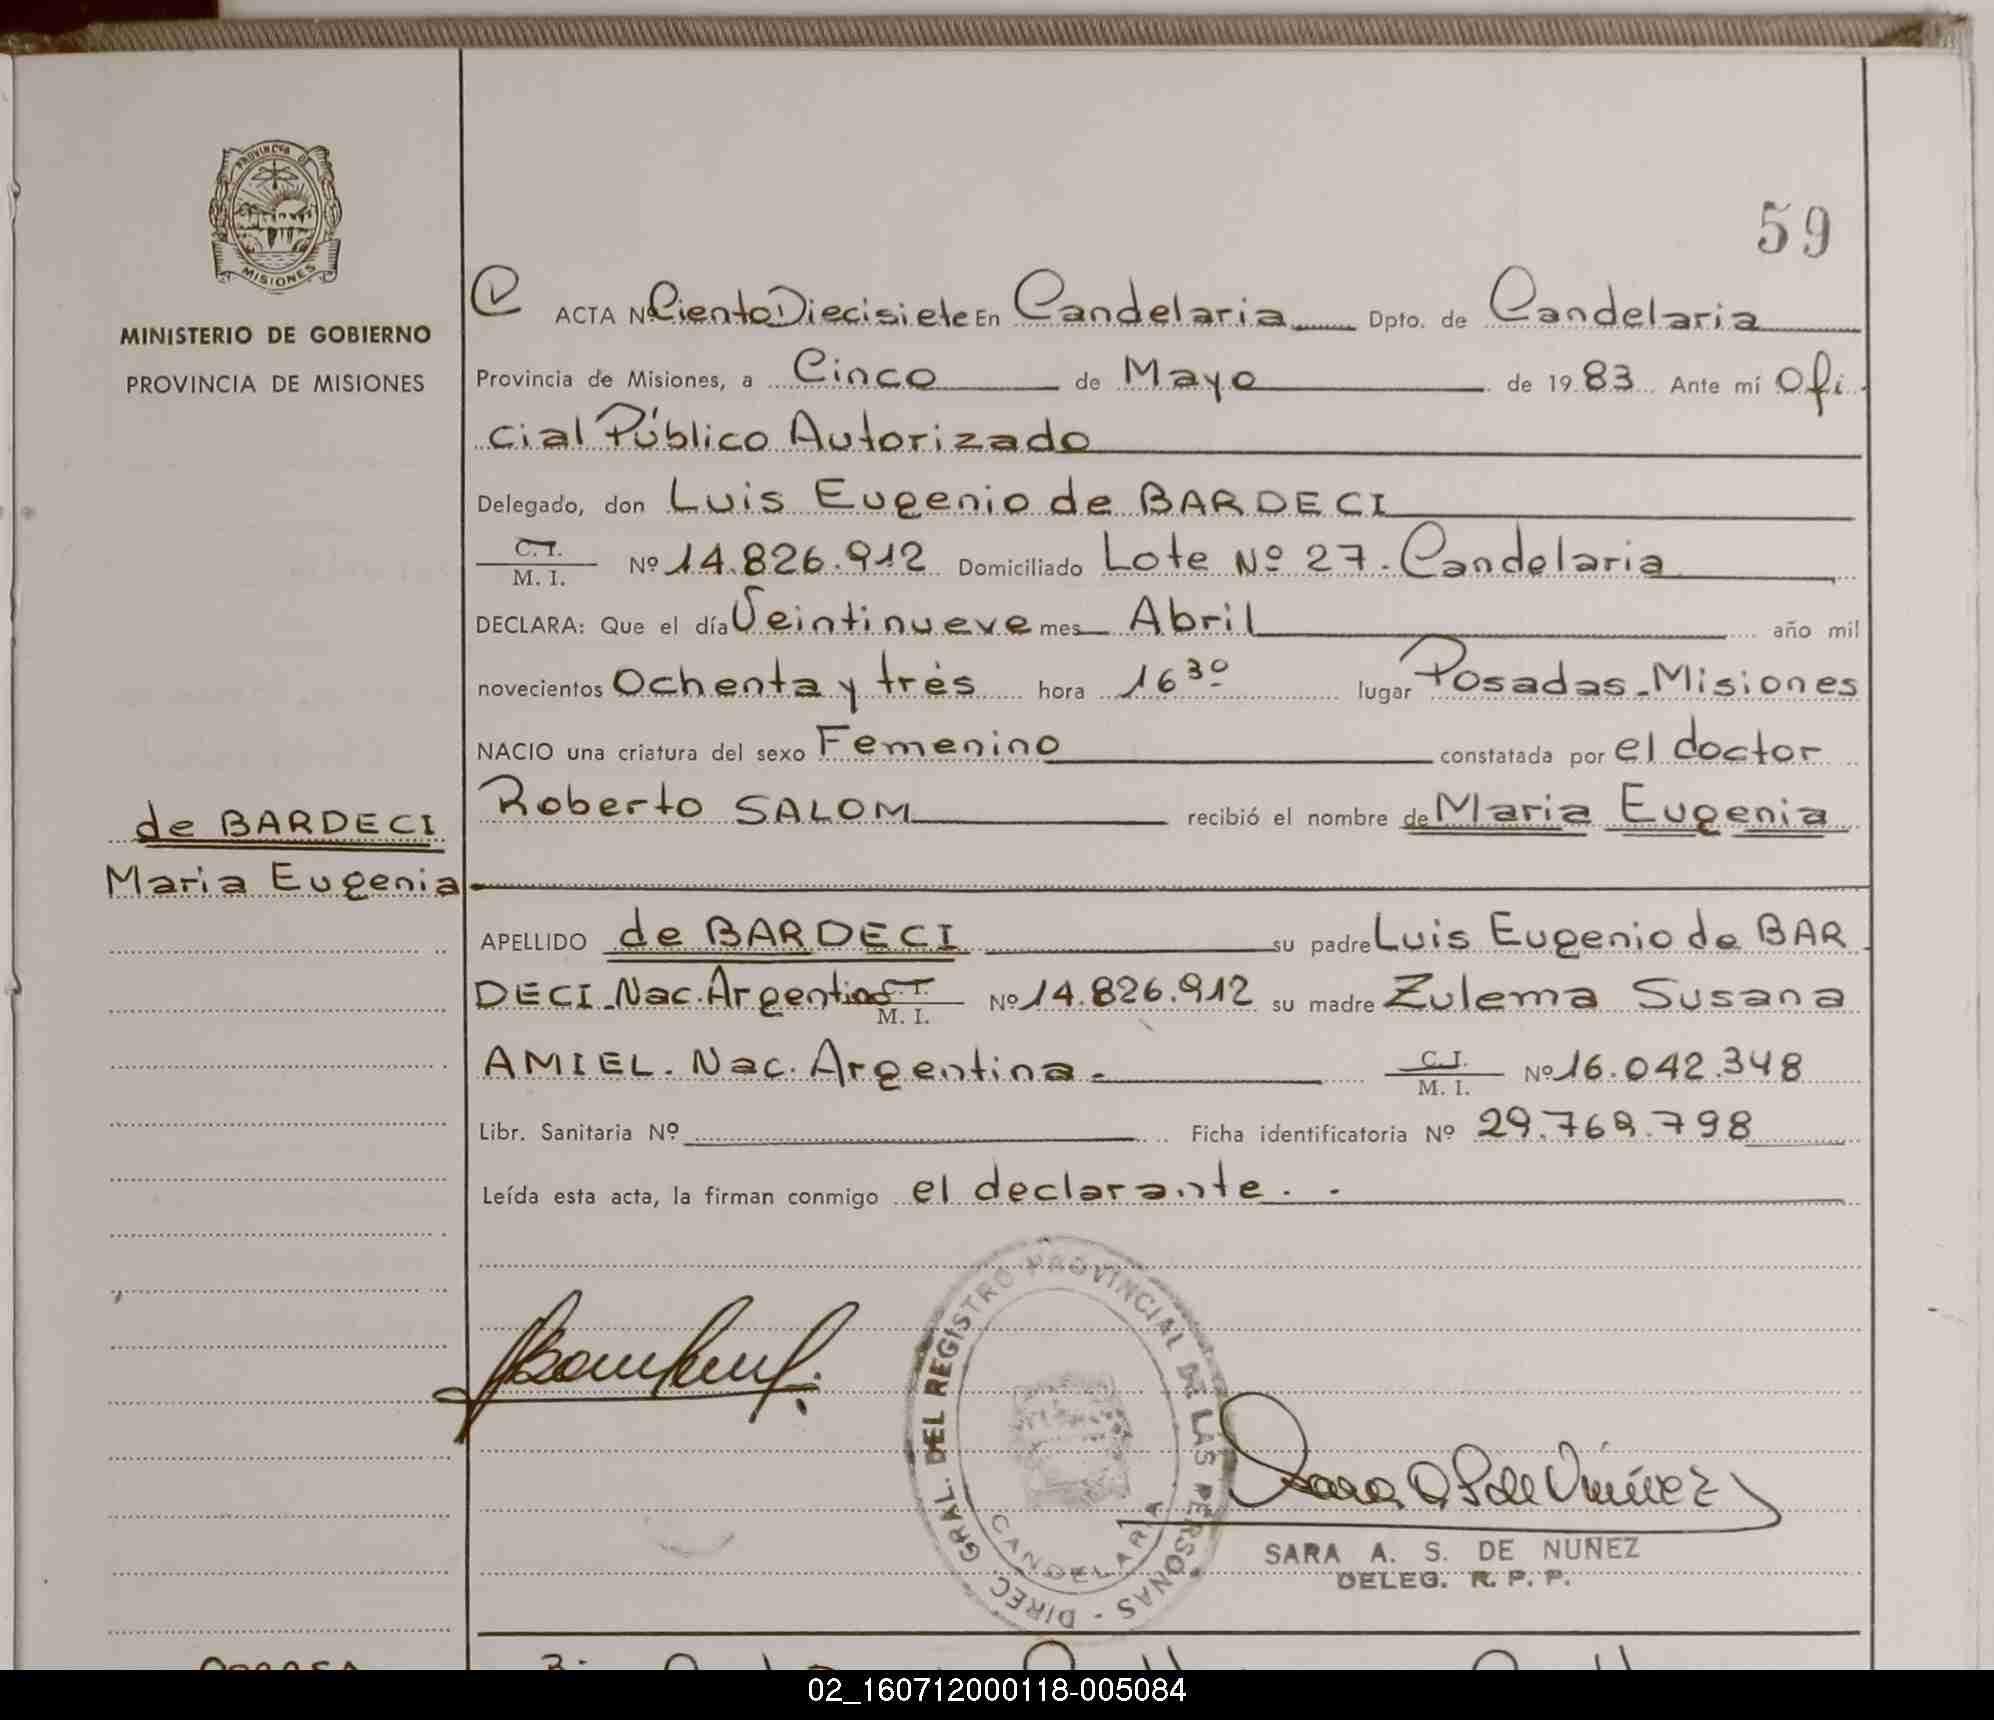 PROVINCIA DE
MISIONES
MINISTERIO DE GOBIERNO
PROVINCIA DE MISIONES
59
ACTA Nº Ciento Diecisiete En Candelaria Dpto. de Candelaria
Provincia de Misiones, a Cinco de Mayo de 1983 Ante mí Ofi
cial Público Autorizado
Delegado, don Luis Eugenio de BARDECI
C. I.
M. I. Nº 14.826.912 Domiciliado Lote Nº 27. Candelaria
DECLARA: Que el día Veintinueve mes Abril año mil
novecientos Ochenta y trés hora 16 30 lugar Posadas_Misiones
NACIO una criatura del sexo Femenino constatada por el doctor
Roberto SALOM recibió el nombre de Maria Eugenia
de BARDECI
Maria Eugenia
APELLIDO de BARDECI su padre Luis Eugenio de BAR
DECI_Nac. Argentino C. I. M. I. Nº 14.826.912 su madre Zulema Susana
AMIEL. Nac. Argentina. C. I. M. I. Nº 16.042.348
Libr. Sanitaria Nº Ficha identificatoria Nº 29.769.798
Leída esta acta, la firman conmigo el declarante. .
DIREC. GRAL. DEL REGISTRO PROVINCIAL DE LAS PERSONAS -
CANDELARIA
SARA A. S. DE NUÑEZ
DELEG. R. P. P.
02_160712000118-005084